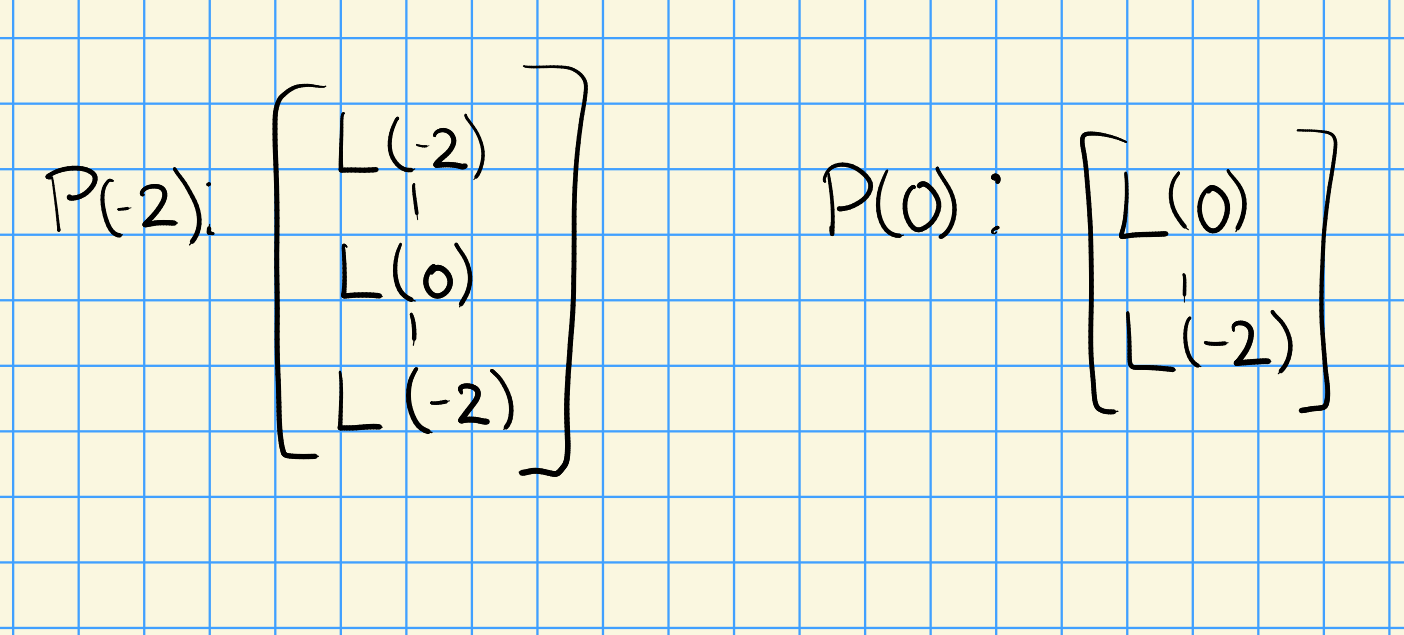 P(-2): [ L(-2)
|
L(0)
|
L(-2) ]
P(0): [ L(0)
|
L(-2) ]